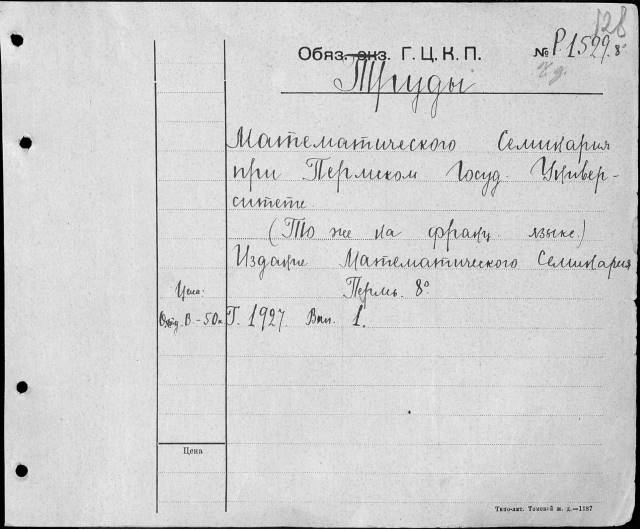 128
Обяз. экз. Г. Ц. К. П. № Р.1529. 8°
Труды
Математического Семинария
при Пермском Госуд. Универ-
ситете.
(То же на франц. языке.)
Издание Математического Семинария
Цена: Пермь. 8°.
В. - 50к Г. 1927. Вып. 1.
Цена
Типо-лит. Томской ж. д.—1187